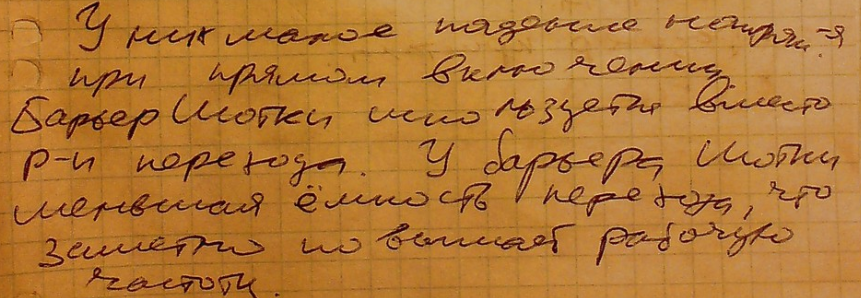 У них малое падение напряж-я
при прямом включении
Барьер Шотки используется вместо
p-n перехода. У барьера Шотки
меньшая ёмкость перехода, что
заметно повышает рабочую
частоту.